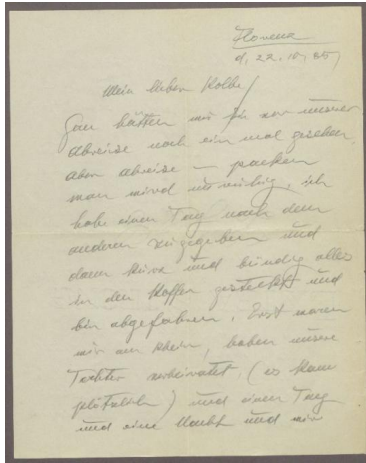 Florenz
d. 22.10.35
Mein lieber Kolbe!
Gern hätten wir Sie vor unserer
Abreise noch ein mal gesehen,
aber Abreise – packen
man wird unruhig, ich
habe einen Tag nach dem
anderen zugegeben und
dann kurz und bündig alles
in den Koffer gesteckt und
bin abgefahren. Erst waren
wir am Rhein, haben unsere
Tochter verheiratet, (es kam
plötzlich) und einen Tag
und eine Nacht und wir